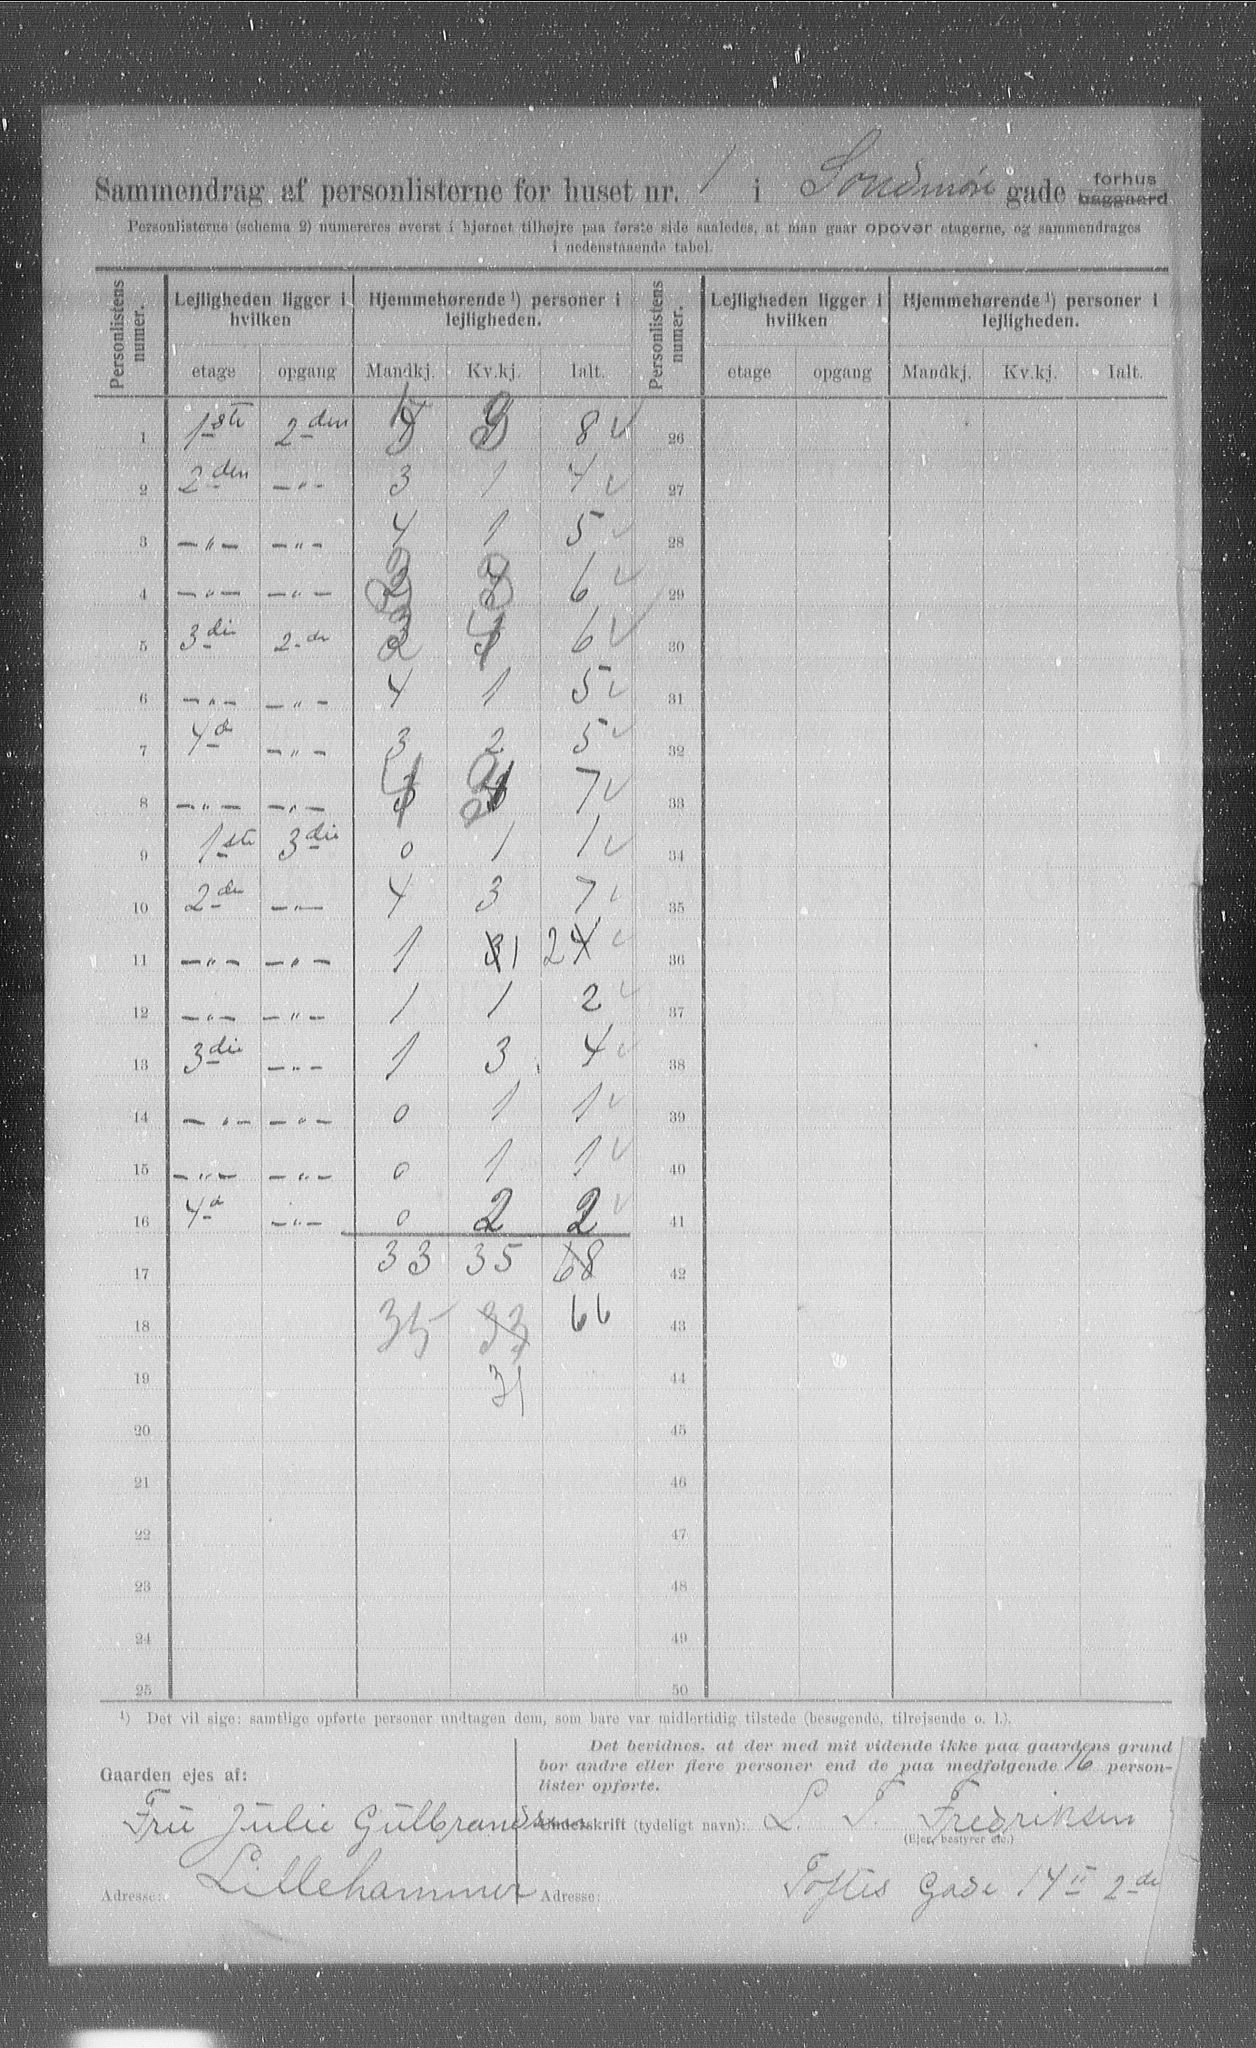 Sammendrag af personlisterne for huset nr. 1 i Sondmøre gade forhus baggaard
Personlisterne (schema 2) numereres øverst i hjørnet tilhøjre paa første side saaledes, at man gaar opover etagerne, og sammendrages
i nedenstaaende tabel.
Personlistens numer. Lejligheden ligger i hvilken Hjemmehørende ¹) personer i lejligheden. Personlistens numer. Lejligheden ligger i hvilken Hjemmehørende ¹) personer i lejligheden.
etage opgang Mandkj. Kv.kj. Ialt. etage opgang Mandkj. Kv.kj. Ialt.
1 1ste 2den 5 3 8 ✓ 26
2 2den —„— 3 1 4 ✓ 27
3 —„— —„— 4 1 5 ✓ 28
4 —„— —„— 6 ✓ 29
5 3die 2de 6 ✓ 30
6 —„— —„— 4 1 5 ✓ 31
7 4de —„— 3 2 5 ✓ 32
8 —„— —„— 7 ✓ 33
9 1ste 3die 0 1 1 ✓ 34
10 2de —„— 4 3 7 ✓ 35
11 —„— —„— 1 3 1 2 4 ✓ 36
12 —„— —„— 1 1 2 ✓ 37
13 3die —„— 1 3 4 ✓ 38
14 —„— —„— 0 1 1 ✓ 39
15 —„— —„— 0 1 1 ✓ 40
16 4de —„— 0 2 2 ✓ 41
17 33 35 68 42
18 35 33 66 43
19 31 44
20 45
21 46
22 47
23 48
24 49
25 50
¹) Det vil sige: samtlige opførte personer undtagen dem, som bare var midlertidig tilstede (besøgende, tilrejsende o. l.).
Det bevidnes, at der med mit vidende ikke paa gaardens grund
bor andre eller flere personer end de paa medfølgende 16 person-
lister opførte.
Gaarden ejes af:
Fru Julie Gulbrandsen
Underskrift (tydeligt navn): L. T. Fredriksen
(Ejer, bestyrer etc.)
Adresse: Lillehammer
Adresse: Toftes Gade 14 II 2de